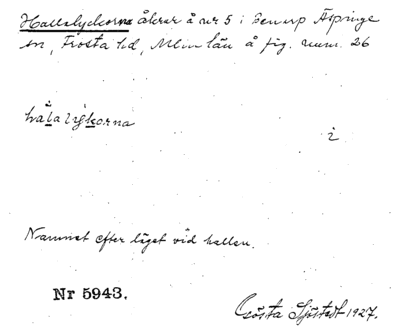 Hallalyckorna åkrar å nr 5 i Benarp Äspinge
sn, Frosta hd, Mlm län å fig. num. 26
halalykorna i
Namnet efter läget vid hallen.
Nr 5943.
Gösta Sjöstedt 1927.